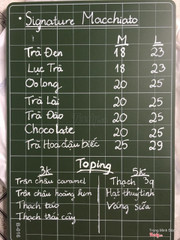 Signature Macchiato
M L
Trà Đen 18 23
Lục Trà 18 23
Oolong 20 25
Trà Lài 20 25
Trà Đào 20 25
Chocolate 20 25
Trà Hoa đậu biếc 25 29
Toping
3k 5k
Trân châu caramel Thạch 3q
Trân châu hoàng kim Hạt thuỷ tinh
Thạch táo Váng sữa
Thạch trái cây